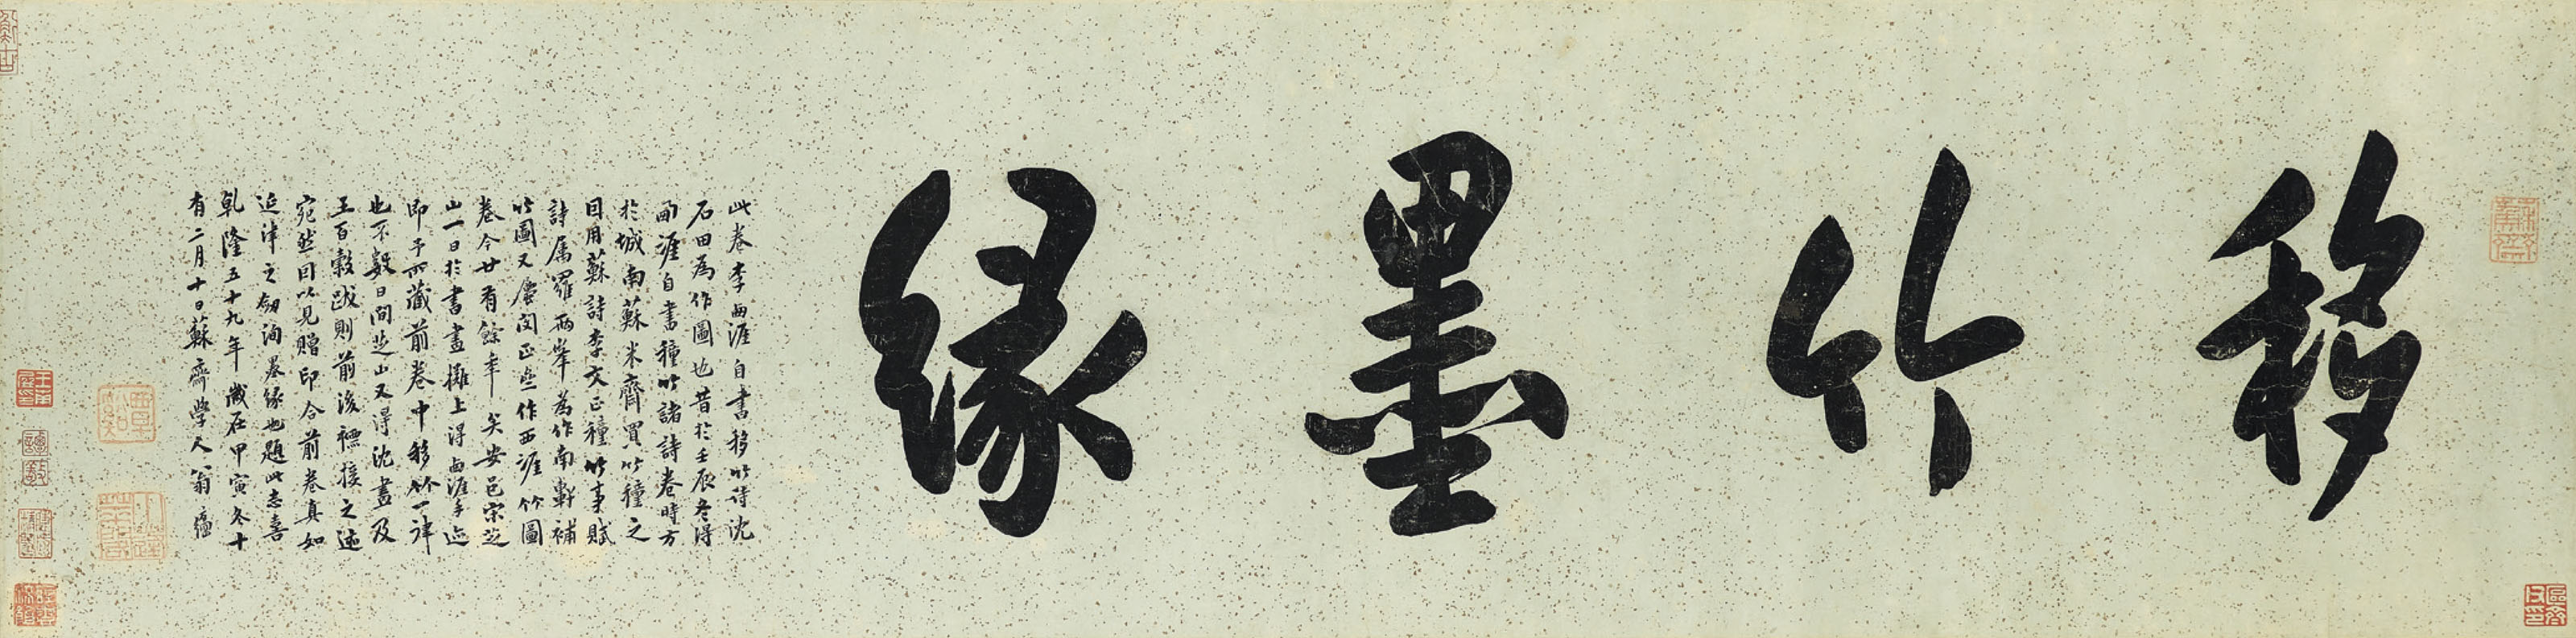 移竹墨緣
此卷李西涯自書移竹詩沈
石田為作圖也昔於壬辰冬得
西涯自書種竹諸詩卷時方
於城南蘇米齋買竹種之
因用蘇詩李文正種竹事賦
詩属羅兩峯為作南軒補
竹圖又屬閔正齋作西涯竹圖
卷今廿有餘年矣安邑宋芝
山一日於書畫攤上得西涯手迹
即予所藏前卷中移竹一律
也不數日間芝山又得沈畫及
王百穀跋則前後褾接之迹
宛然因以見贈印合前卷真如
延津之劒洵墨緣也題此志喜
乾隆五十九年歲在甲寅冬十
有二月十日蘇齋學人翁方綱